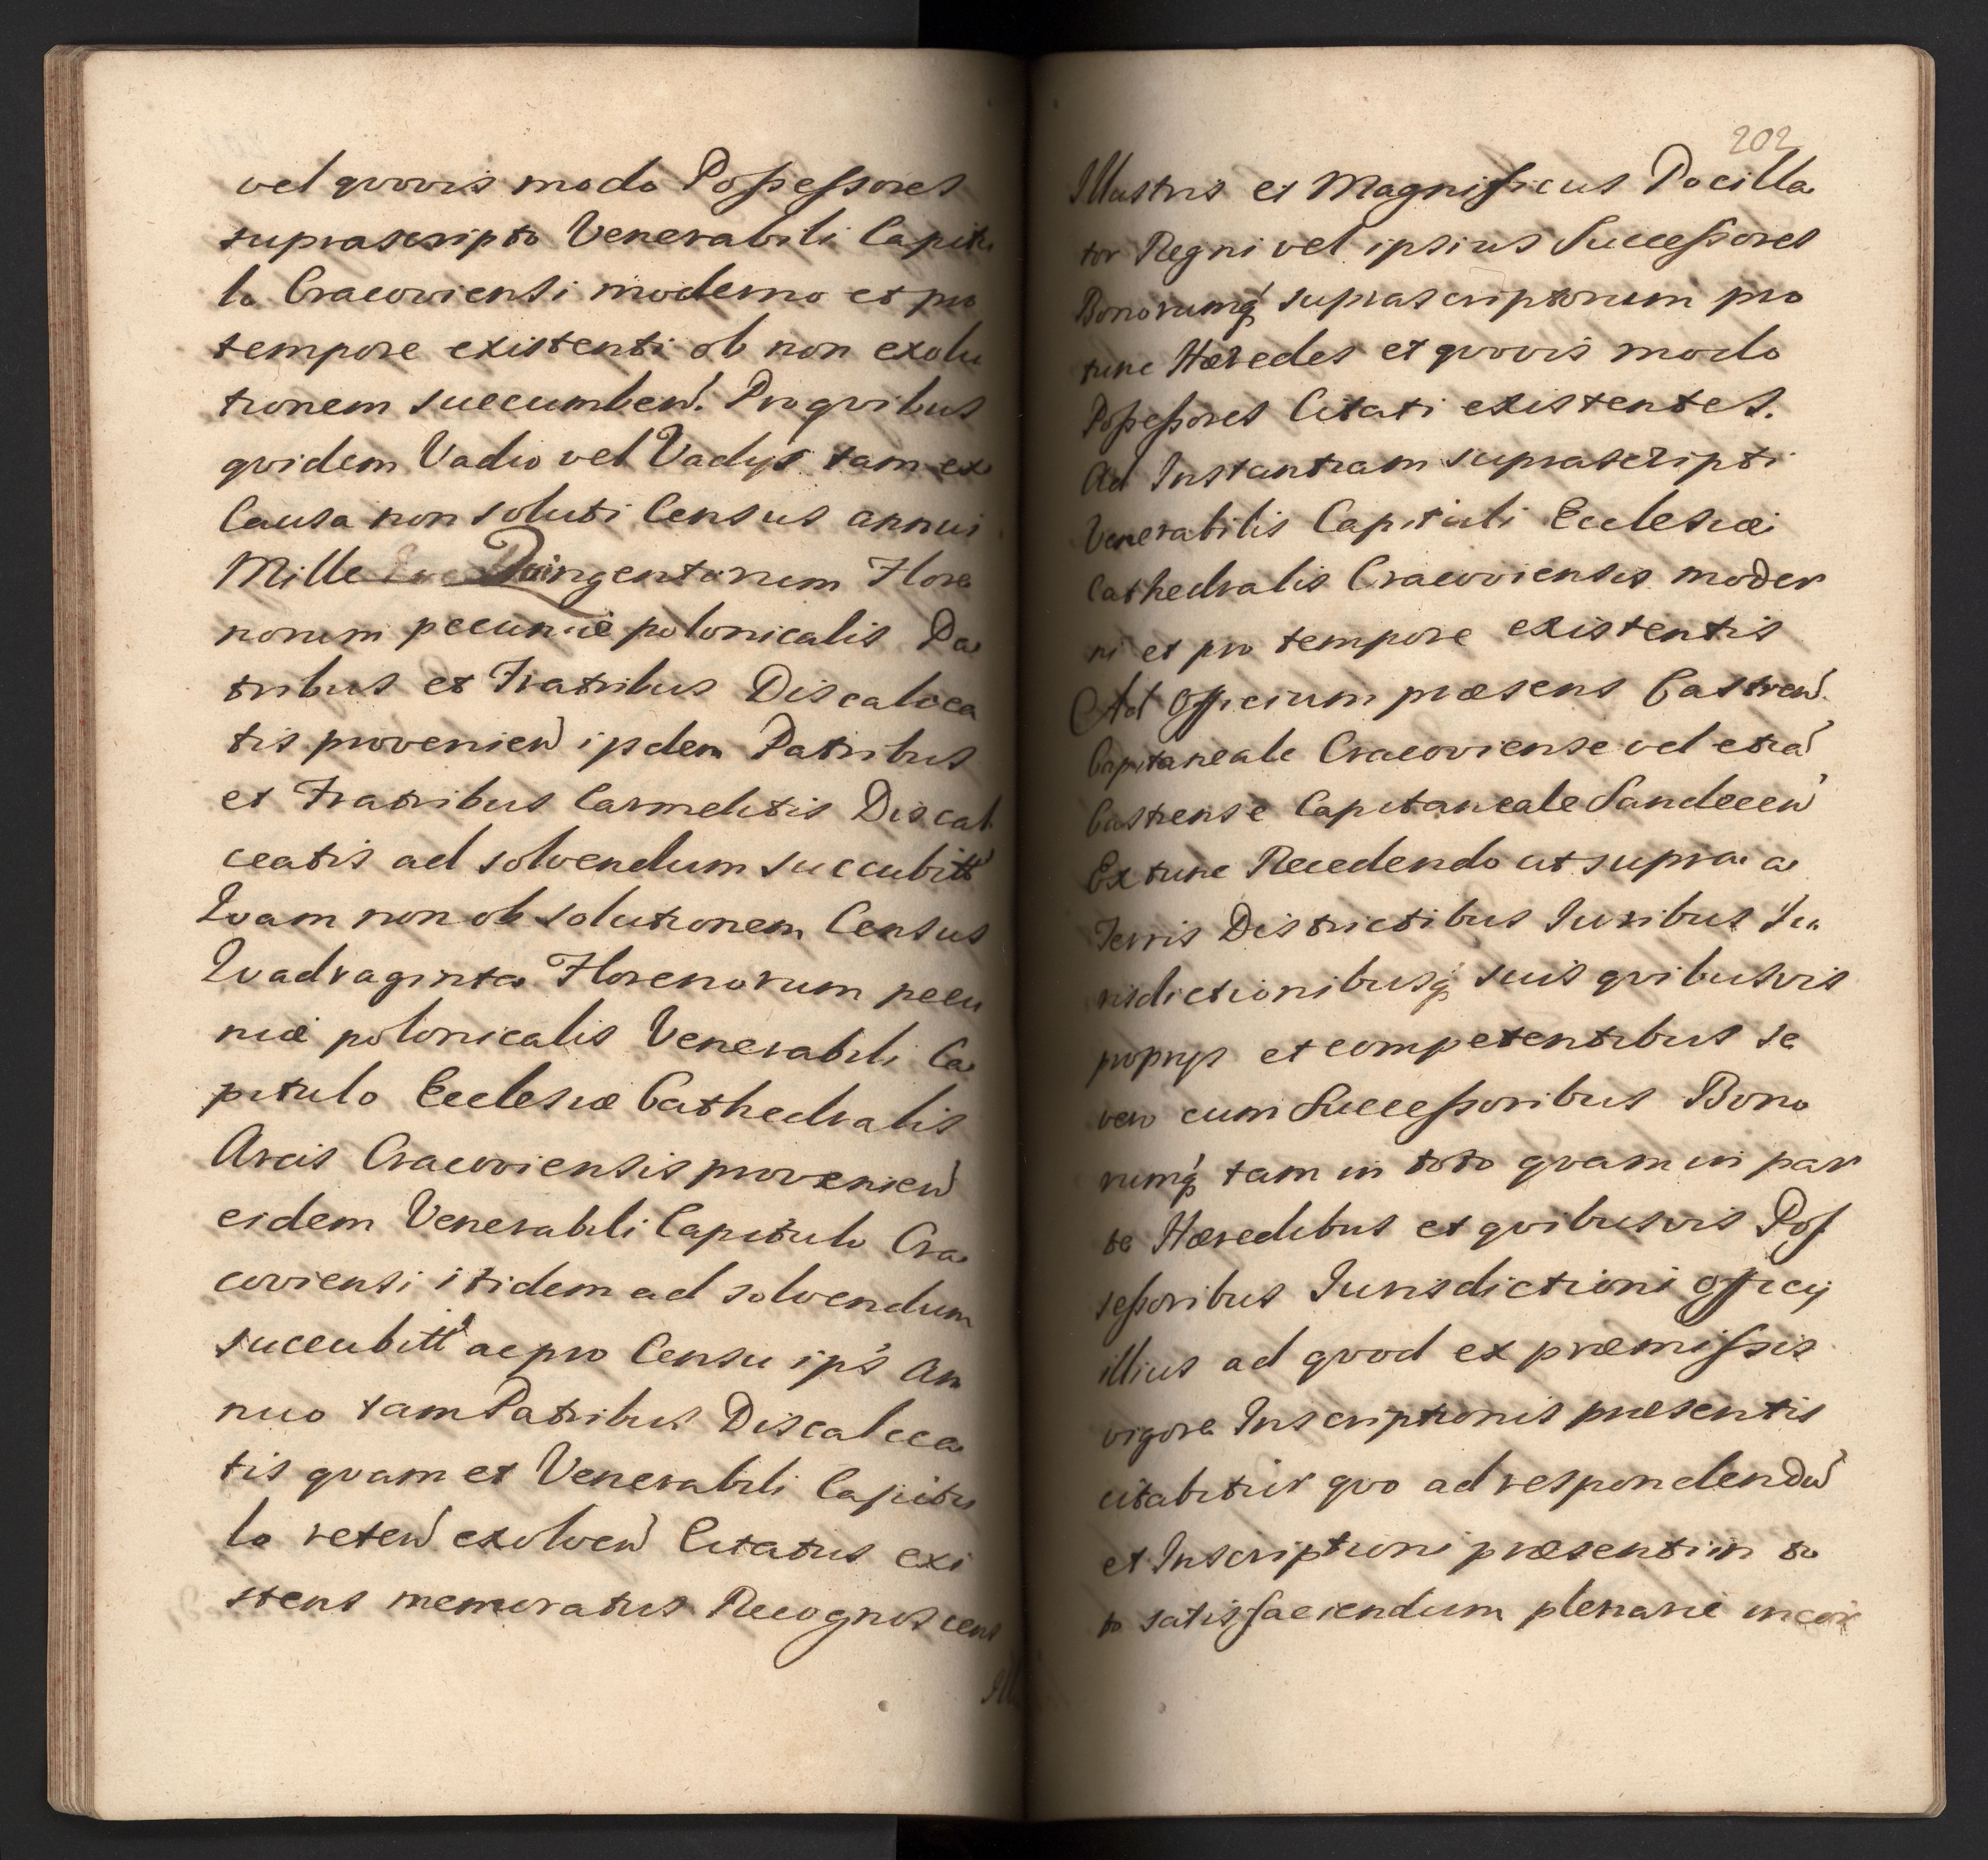 vel qvovis modo Possessores
suprascripto Venerabili Capitu
lo Cracoviensi moderno et pro
tempore existenti ob non exolu
tionem succumben. Pro qvibus
qvidem Vadio vel Vadÿs tam ex
Causa non soluti Census annui
Mille Qvingentorum Flore
norum pecuniæ polonicalis Pa
tribus et Fratribus Discalcea
tis provenien ipsdem Patribus
et Fratribus Carmelitis Discal
ceatis ad solvendum succubitt
Qvam non ob solutionem Census
Qvadraginta Florenorum pecu
niæ polonicalis Venerabili Ca
pitulo Ecclesiæ Cathedralis
Arcis Cracoviensis provenien
eidem Venerabili Capitulo Cra
coviensi itidem ad solvendum
succubitt ac pro Censu ips An
nuo tam Patribus Discalcea
tis qvam et Venerabili Capitu
lo reten exolven Citatus exi
stens memoratus Recognoscens
Ill
202
Illustris et Magnificus Pocilla
tor Regni vel ipsius Successores
Bonorumq suprascriptorum pro
tunc Hæredes et qvovis modo
Possessores Citati existentes.
Ad Instantiam suprascripti
Venerabilis Capituli Ecclesiæ
Cathedralis Cracoviensis moder
ni et pro tempore existentis
Ad Officium præsens Castren
Capitaneale Cracoviense vel etia
Castrense Capitaneale Sandecen
Ex tunc Recedendo ut supra a
Terris Districtibus Iuribus Iu
risdictionibusq suis qvibusvis
proprÿs et competentibus se
vero cum Successoribus Bono
rumq tam in toto qvam in par
te Hæredibus et qvibusvis Pos
sessoribus Iurisdictioni Officÿ
illius ad qvod ex præmissis
vigore Inscriptionis præsentis
citabitur qvo ad respondendu
et Inscriptioni præsenti in to
to satisfaciendum plenarie incor